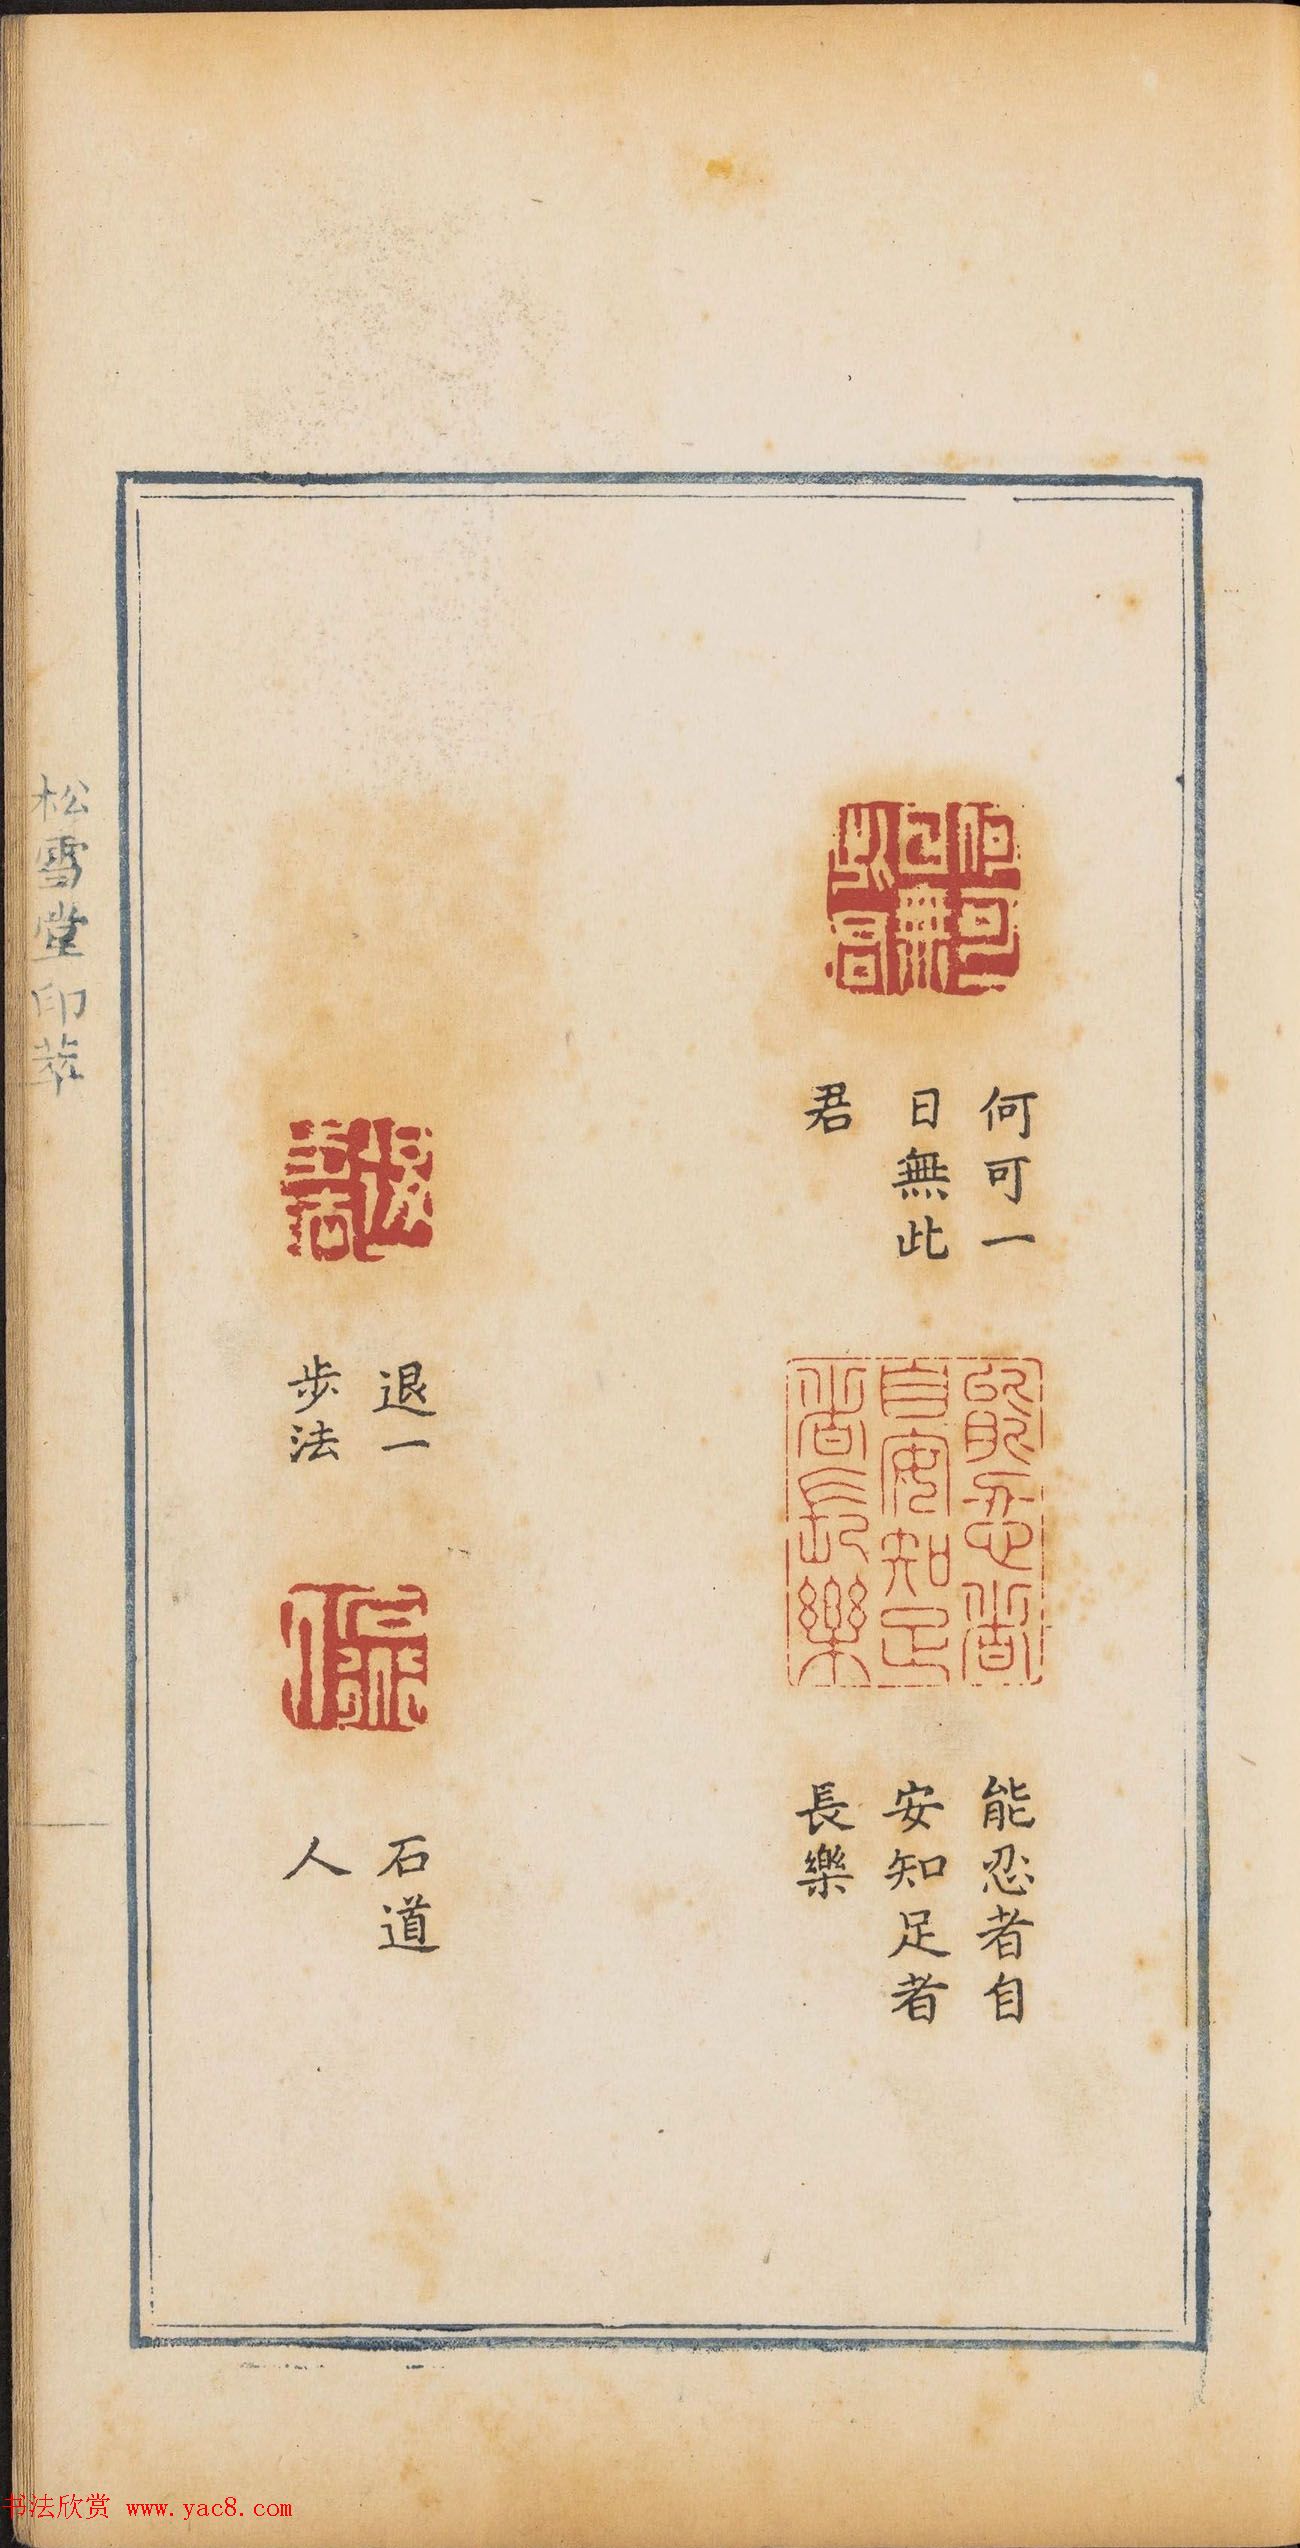 何可一
日無此
君
能忍者自
安知足者
長樂
退一
步法
石道
人
松雪堂印萃
书法欣赏 www.yac8.com